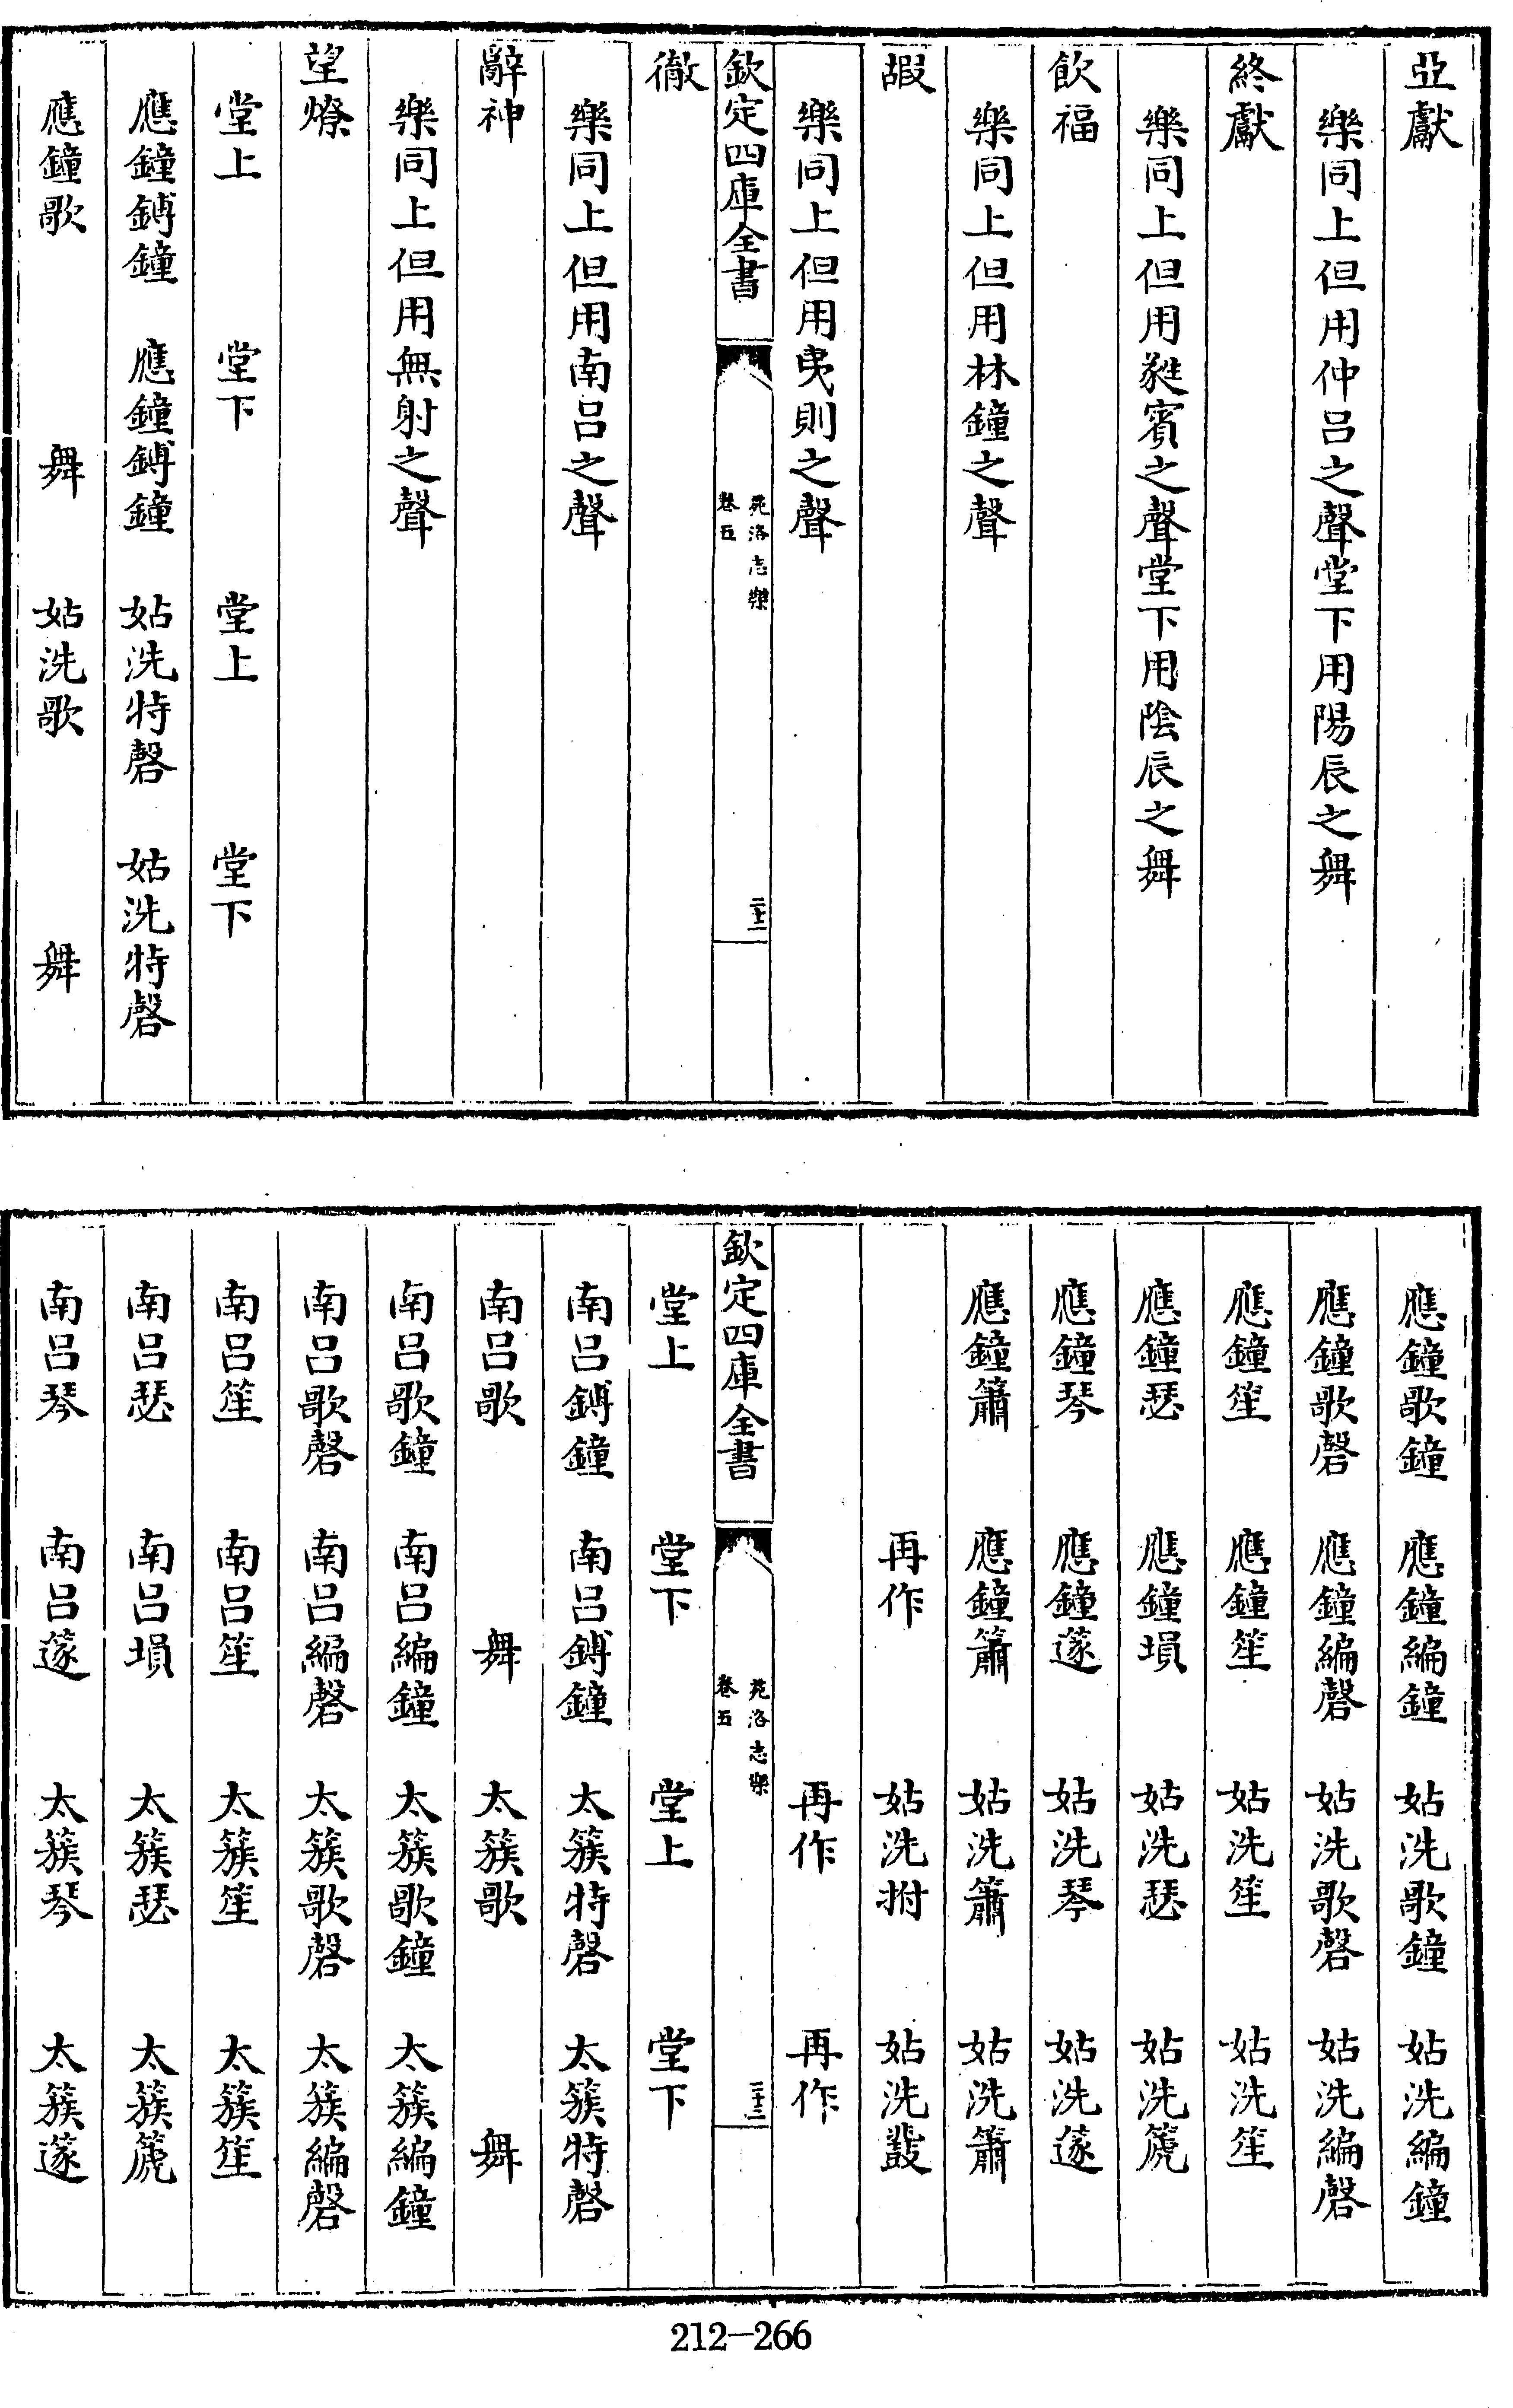 亞獻
樂同上但用仲呂之聲堂下用陽辰之舞
終獻
樂同上但用蕤賓之聲堂下用陰辰之舞
飲福
樂同上但用林鐘之聲
嘏
樂同上但用夷則之聲
欽定四庫全書 苑洛志樂 卷五 二十二
徹
樂同上但用南呂之聲
辭神
樂同上但用無射之聲
望燎
堂上 堂下 堂上 堂下
應鐘鎛鐘 應鐘鎛鐘 姑洗特磬 姑洗特磬
應鐘歌 舞 姑洗歌 舞
應鐘歌鐘 應鐘編鐘 姑洗歌鐘 姑洗編鐘
應鐘歌磬 應鐘編磬 姑洗歌磬 姑洗編磬
應鐘笙 應鐘笙 姑洗笙 姑洗笙
應鐘瑟 應鐘塤 姑洗瑟 姑洗篪
應鐘琴 應鐘篴 姑洗琴 姑洗篴
應鐘簫 應鐘簫 姑洗簫 姑洗簫
再作 姑洗拊 姑洗鼗
再作 再作
欽定四庫全書 苑洛志樂 卷五 二十三
堂上 堂下 堂上 堂下
南呂鎛鐘 南呂鎛鐘 太簇特磬 太簇特磬
南呂歌 舞 太簇歌 舞
南呂歌鐘 南呂編鐘 太簇歌鐘 太簇編鐘
南呂歌磬 南呂編磬 太簇歌磬 太簇編磬
南呂笙 南呂笙 太簇笙 太簇笙
南呂瑟 南呂塤 太簇瑟 太簇篪
南呂琴 南呂篴 太簇琴 太簇篴
212-266